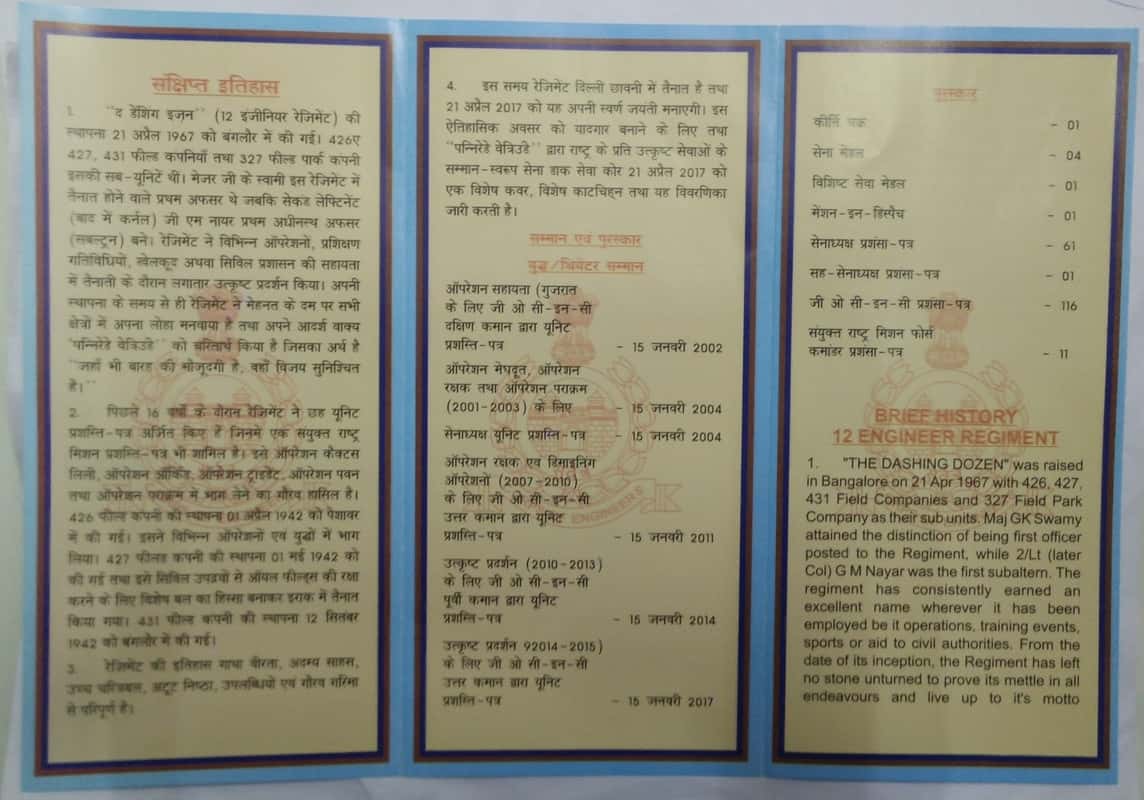 संक्षिप्त इतिहास
1. "द डेशिंग डज़न" (12 इंजीनियर रेजिमेंट) की
स्थापना 21 अप्रैल 1967 को बंगलौर में की गई। 426ए
427, 431 फील्ड कंपनियाँ तथा 327 फील्ड पार्क कंपनी
इसकी सब-यूनिटें थी। मेजर जी के स्वामी इस रेजिमेंट में
तैनात होने वाले प्रथम अफसर थे जबकि सेकंड लेफ्टिनेंट
(बाद में कर्नल) जी एम नायर प्रथम अधीनस्थ अफसर
(सबल्ट्रन) बने। रेजिमेंट ने विभिन्न ऑपरेशनों, प्रशिक्षण
गतिविधियों, खेलकूद अथवा सिविल प्रशासन की सहायता
में तैनाती के दौरान लगातार उत्कृष्ट प्रदर्शन किया। अपनी
स्थापना के समय से ही रेजिमेंट ने मेहनत के दम पर सभी
क्षेत्रों में अपना लोहा मनवाया है तथा अपने आदर्श वाक्य
"पन्निरेडे वेत्रिउडे" को चरितार्थ किया है जिसका अर्थ है
"जहाँ भी बारह की मौजूदगी है, वहाँ विजय सुनिश्चित
है।"
2. पिछले 16 वर्षों के दौरान रेजिमेंट ने छह यूनिट
प्रशस्ति-पत्र अर्जित किए हैं जिनमें एक संयुक्त राष्ट्र
मिशन प्रशस्ति-पत्र भी शामिल है। इसे ऑपरेशन कैक्टस
लिली, ऑपरेशन ऑर्किड, ऑपरेशन ट्राइडेंट, ऑपरेशन पवन
तथा ऑपरेशन पराक्रम में भाग लेने का गौरव हासिल है।
426 फील्ड कंपनी की स्थापना 01 अप्रैल 1942 को पेशावर
में की गई। इसने विभिन्न ऑपरेशनों एवं युद्धों में भाग
लिया। 427 फील्ड कंपनी की स्थापना 01 मई 1942 को
की गई तथा इसे सिविल उपद्रवों से ऑयल फील्ड्स की रक्षा
करने के लिए विशेष बल का हिस्सा बनाकर इराक में तैनात
किया गया। 431 फील्ड कंपनी की स्थापना 12 सितंबर
1942 को बंगलौर में की गई।
3. रेजिमेंट की इतिहास गाथा वीरता, अदम्य साहस,
उच्च चरित्रबल, अटूट निष्ठा, उपलब्धियों एवं गौरव गरिमा
से परिपूर्ण है।
4. इस समय रेजिमेंट दिल्ली छावनी में तैनात है तथा
21 अप्रैल 2017 को यह अपनी स्वर्ण जयंती मनाएगी। इस
ऐतिहासिक अवसर को यादगार बनाने के लिए तथा
"पन्निरेडे वेत्रिउडे" द्वारा राष्ट्र के प्रति उत्कृष्ट सेवाओं के
सम्मान-स्वरूप सेना डाक सेवा कोर 21 अप्रैल 2017 को
एक विशेष कवर, विशेष काटचिह्न तथा यह विवरणिका
जारी करती है।
सम्मान एवं पुरस्कार
युद्ध/थियेटर सम्मान
ऑपरेशन सहायता (गुजरात
के लिए जी ओ सी-इन-सी
दक्षिण कमान द्वारा यूनिट
प्रशस्ति-पत्र - 15 जनवरी 2002
ऑपरेशन मेघदूत, ऑपरेशन
रक्षक तथा ऑपरेशन पराक्रम
(2001-2003) के लिए - 15 जनवरी 2004
सेनाध्यक्ष यूनिट प्रशस्ति-पत्र - 15 जनवरी 2004
ऑपरेशन रक्षक एवं डिमाइनिंग
ऑपरेशनों (2007-2010)
के लिए जी ओ सी-इन-सी
उत्तर कमान द्वारा यूनिट
प्रशस्ति-पत्र - 15 जनवरी 2011
उत्कृष्ट प्रदर्शन (2010-2013)
के लिए जी ओ सी-इन-सी
पूर्वी कमान द्वारा यूनिट
प्रशस्ति-पत्र - 15 जनवरी 2014
उत्कृष्ट प्रदर्शन 92014-2015)
के लिए जी ओ सी-इन-सी
उत्तर कमान द्वारा यूनिट
प्रशस्ति-पत्र - 15 जनवरी 2017
ENGINEERS
पुरस्कार
कीर्ति चक्र - 01
सेना मेडल - 04
विशिष्ट सेवा मेडल - 01
मेंशन-इन-डिस्पैच - 01
सेनाध्यक्ष प्रशंसा-पत्र - 61
सह-सेनाध्यक्ष प्रशंसा-पत्र - 01
जी ओ सी-इन-सी प्रशंसा-पत्र - 116
संयुक्त राष्ट्र मिशन फोर्स
कमांडर प्रशंसा-पत्र - 11
BRIEF HISTORY
12 ENGINEER REGIMENT
1. "THE DASHING DOZEN" was raised
in Bangalore on 21 Apr 1967 with 426, 427,
431 Field Companies and 327 Field Park
Company as their sub units. Maj GK Swamy
attained the distinction of being first officer
posted to the Regiment, while 2/Lt (later
Col) G M Nayar was the first subaltern. The
regiment has consistently earned an
excellent name wherever it has been
employed be it operations, training events,
sports or aid to civil authorities. From the
date of its inception, the Regiment has left
no stone unturned to prove its mettle in all
endeavours and live up to it's motto